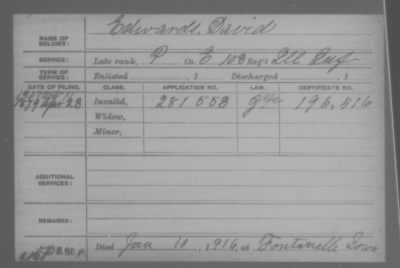 NAME OF SOLDIER: Edwards, David
SERVICE: Late rank, P Co. E 103 Reg't Ill Inf
TERM OF SERVICE: Enlisted , 1 Discharged , 1
DATE OF FILING. CLASS. APPLICATION NO. LAW. CERTIFICATE NO.
1879 Apr 23 Invalid, 281 553 196,416
Widow,
Minor,
ADDITIONAL SERVICES:
REMARKS:
Died Jan 10, 1916, at Fontanelle Iowa